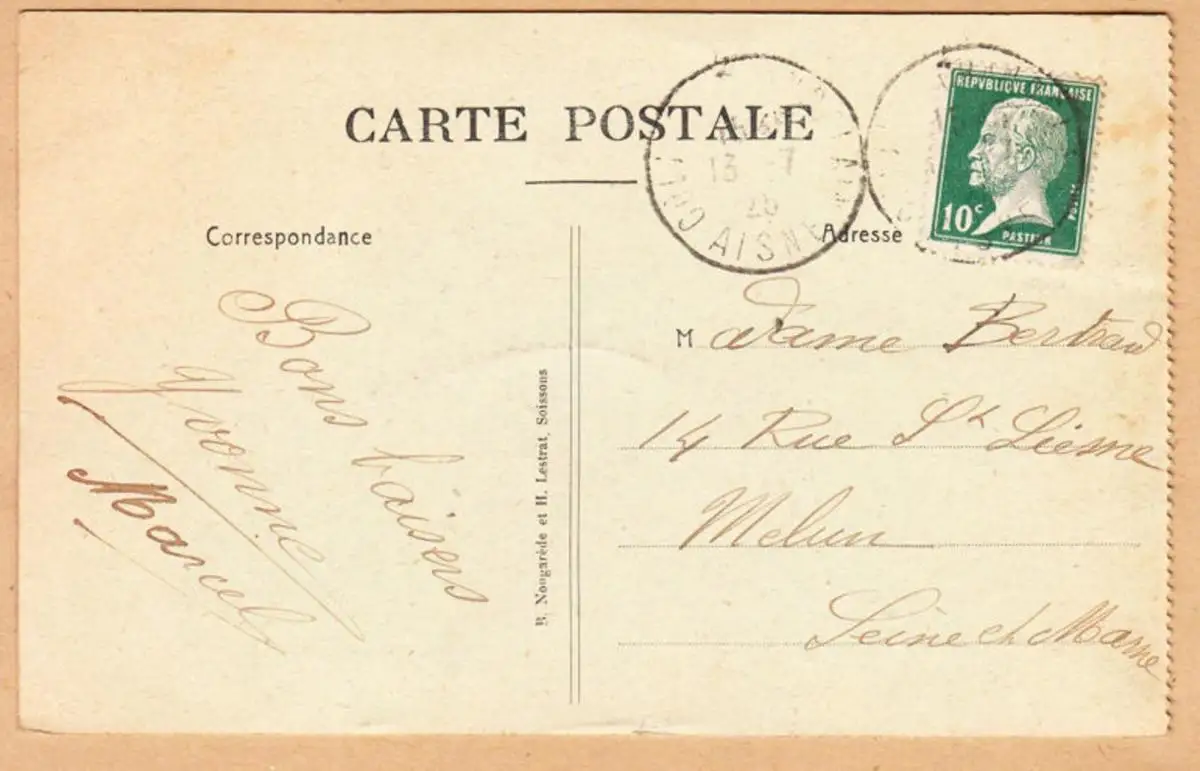 CARTE POSTALE
Correspondance
Adresse
REPVBLIQVE FRANÇAISE
10c
PASTEUR
POSTES
13 7
AISNE
Bons baisers
Yvonne
Marcel
B. Nougarède et H. Lestrat, Soissons
Madame Bertrand
14 Rue St Liesne
Melun
Seine et Marne